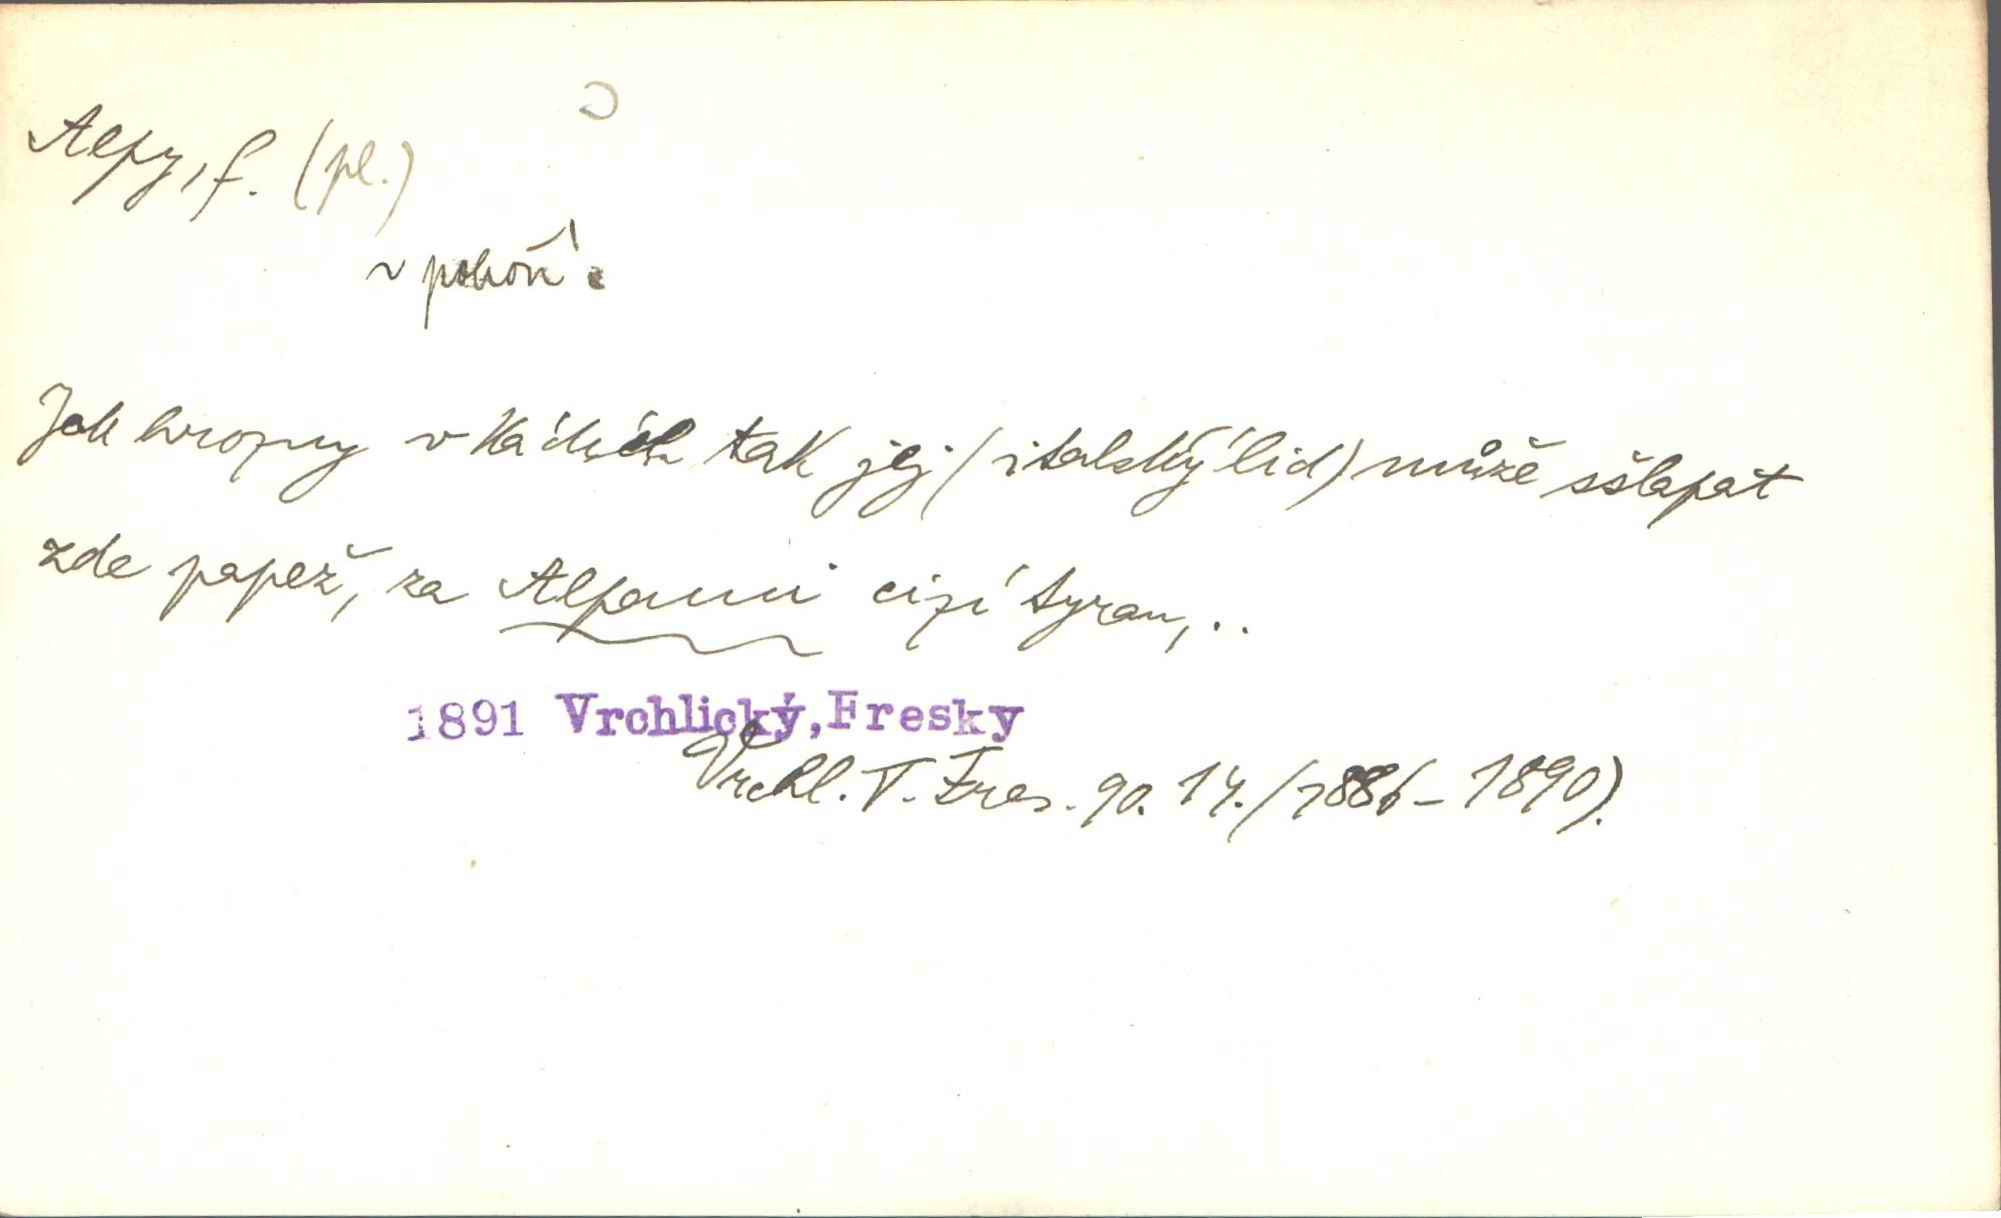 Alpy, f. (pl.)
v pohoří
Jak hrozny v kádích tak jej (italský lid) může sšlapat
zde papež, za Alpami cizí tyran,..
1891 Vrchlický,Fresky
Vrchl. T. Fres. 90. 14. (1886–1890).